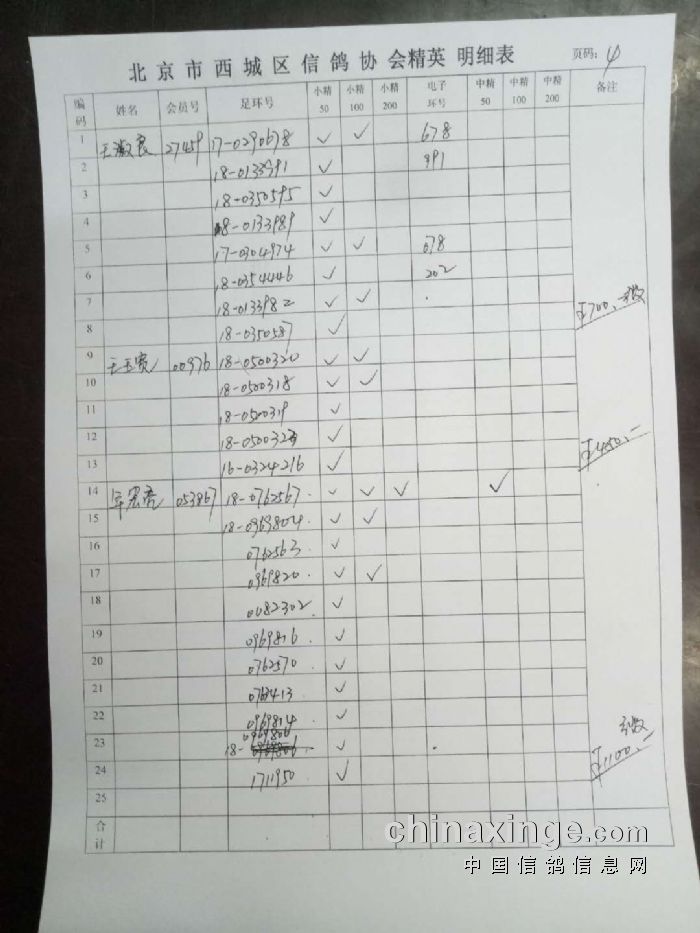 北京市西城区信鸽协会精英 明细表 页码: 4
编码 姓名 会员号 足环号 小精50 小精100 小精200 电子环号 中精50 中精100 中精200 备注
1 王淑良 27459 17-0290678 ✓ ✓ 678
2 18-0133991 ✓ 991
3 18-0350595 ✓
4 18-0133989 ✓
5 17-0304974 ✓ ✓ 078
6 18-0354446 ✓ 202
7 18-0133982 ✓ ✓ ¥700.-
8 18-0350587 ✓
9 王玉宽 00976 18-0500320 ✓ ✓
10 18-0500318 ✓ ✓
11 18-0500319 ✓
12 18-050032 ✓ ¥450.-
13 16-0324216 ✓
14 宏亮 053867 18-0762567. ✓ ✓ ✓ ✓
15 18-0969804. ✓ ✓
16 0762563 ✓
17 0969820. ✓ ✓
18 0082302. ✓
19 0969816. ✓
20 0762570. ✓
21 0762413 ✓
22 0969814. ✓
23 18-0969806 ✓ ¥1100.-
24 1711950 ✓
25
合计
chinaxinge.com
中国信鸽信息网